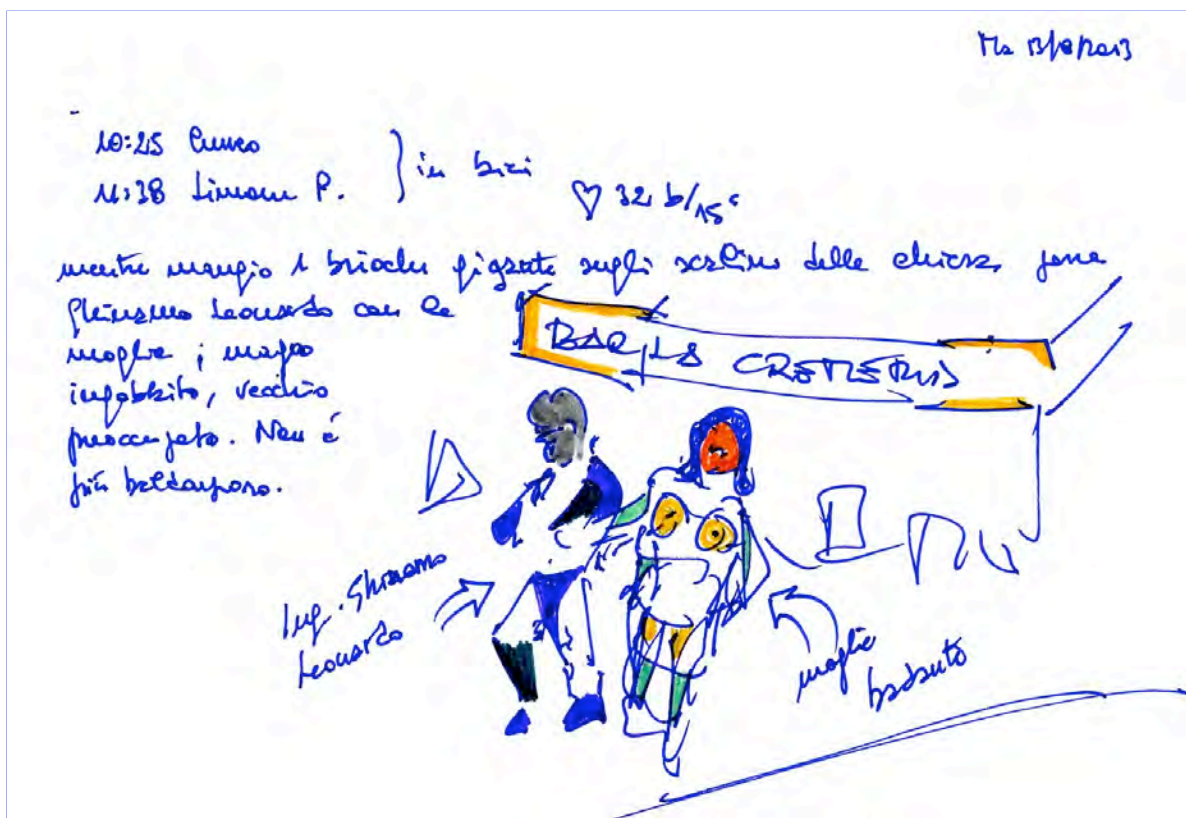 Ma 13/8/2013
10:25 Cuneo
11:38 Limone P. } in bici
♡ 32 b/15"
mentre mangio 1 brioche gigante sugli scalini della chiesa, passa
Ghinamo Leonardo con la
moglie; magro
ingobbito, vecchio
preoccupato. Non è
più baldanzoso.
BAR LA CREMERIA
Ing. Ghinamo
Leonardo
moglie
badante